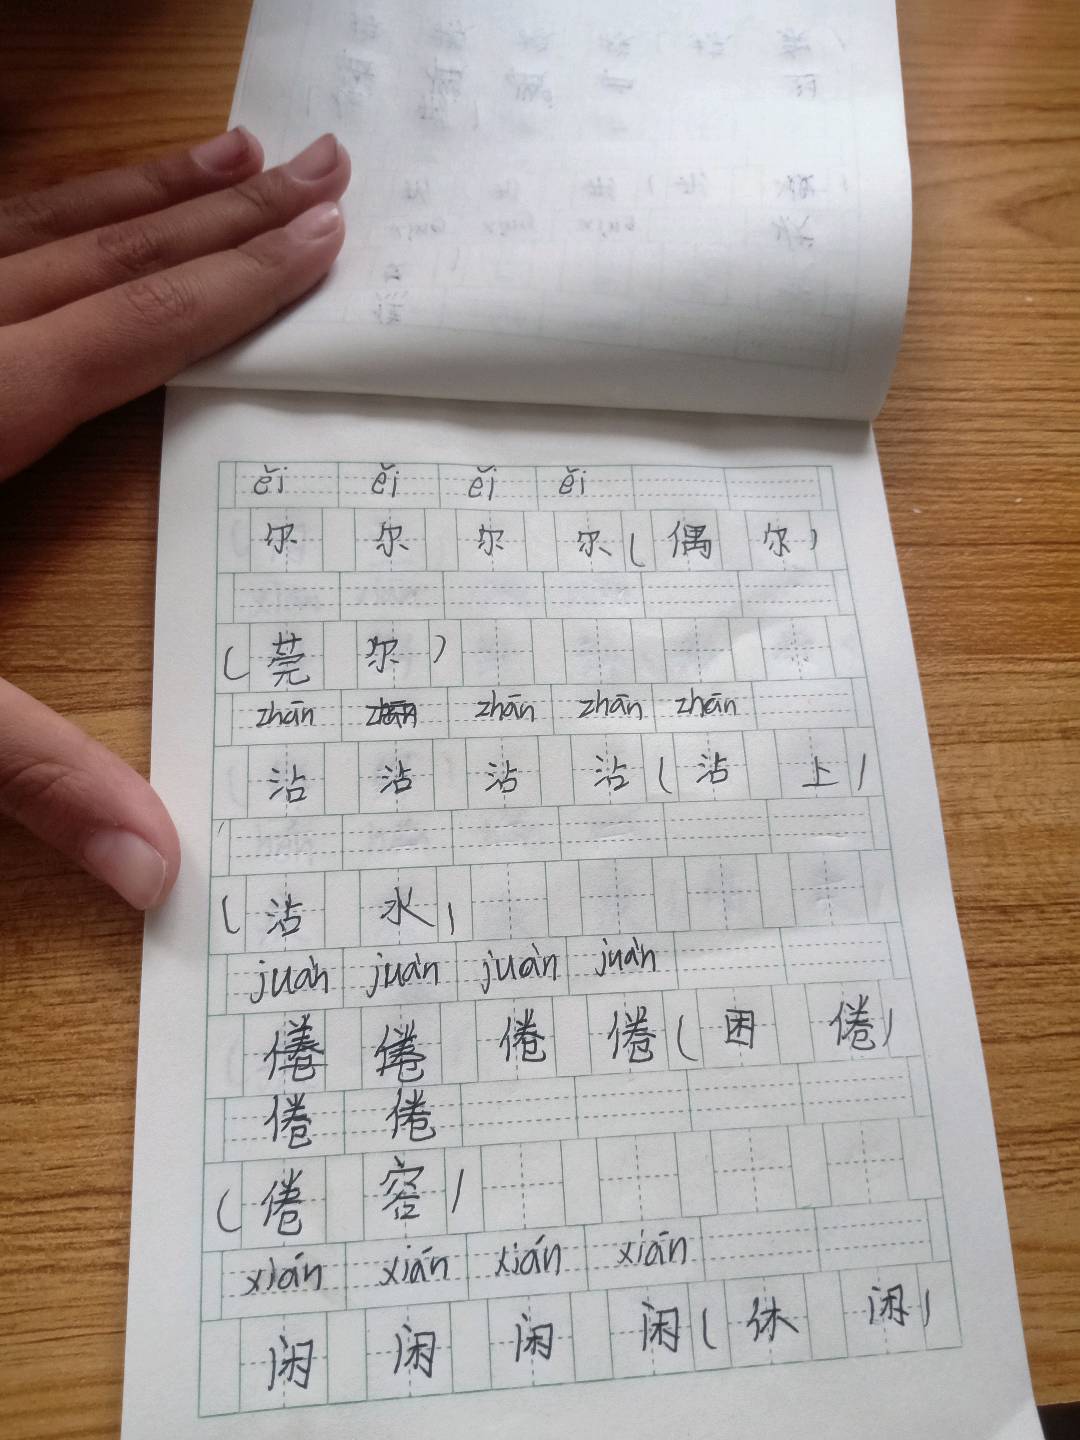 ěi ěi ěi ěi
尔 尔 尔 尔 ( 偶 尔 )
( 莞 尔 )
zhān zhān zhān zhān zhān
沾 沾 沾 沾 ( 沾 上 )
( 沾 水 )
juàn juàn juàn juàn
倦 倦 倦 倦 ( 困 倦 )
倦 倦
( 倦 容 )
xián xián xián xián
闲 闲 闲 闲 ( 休 闲 )